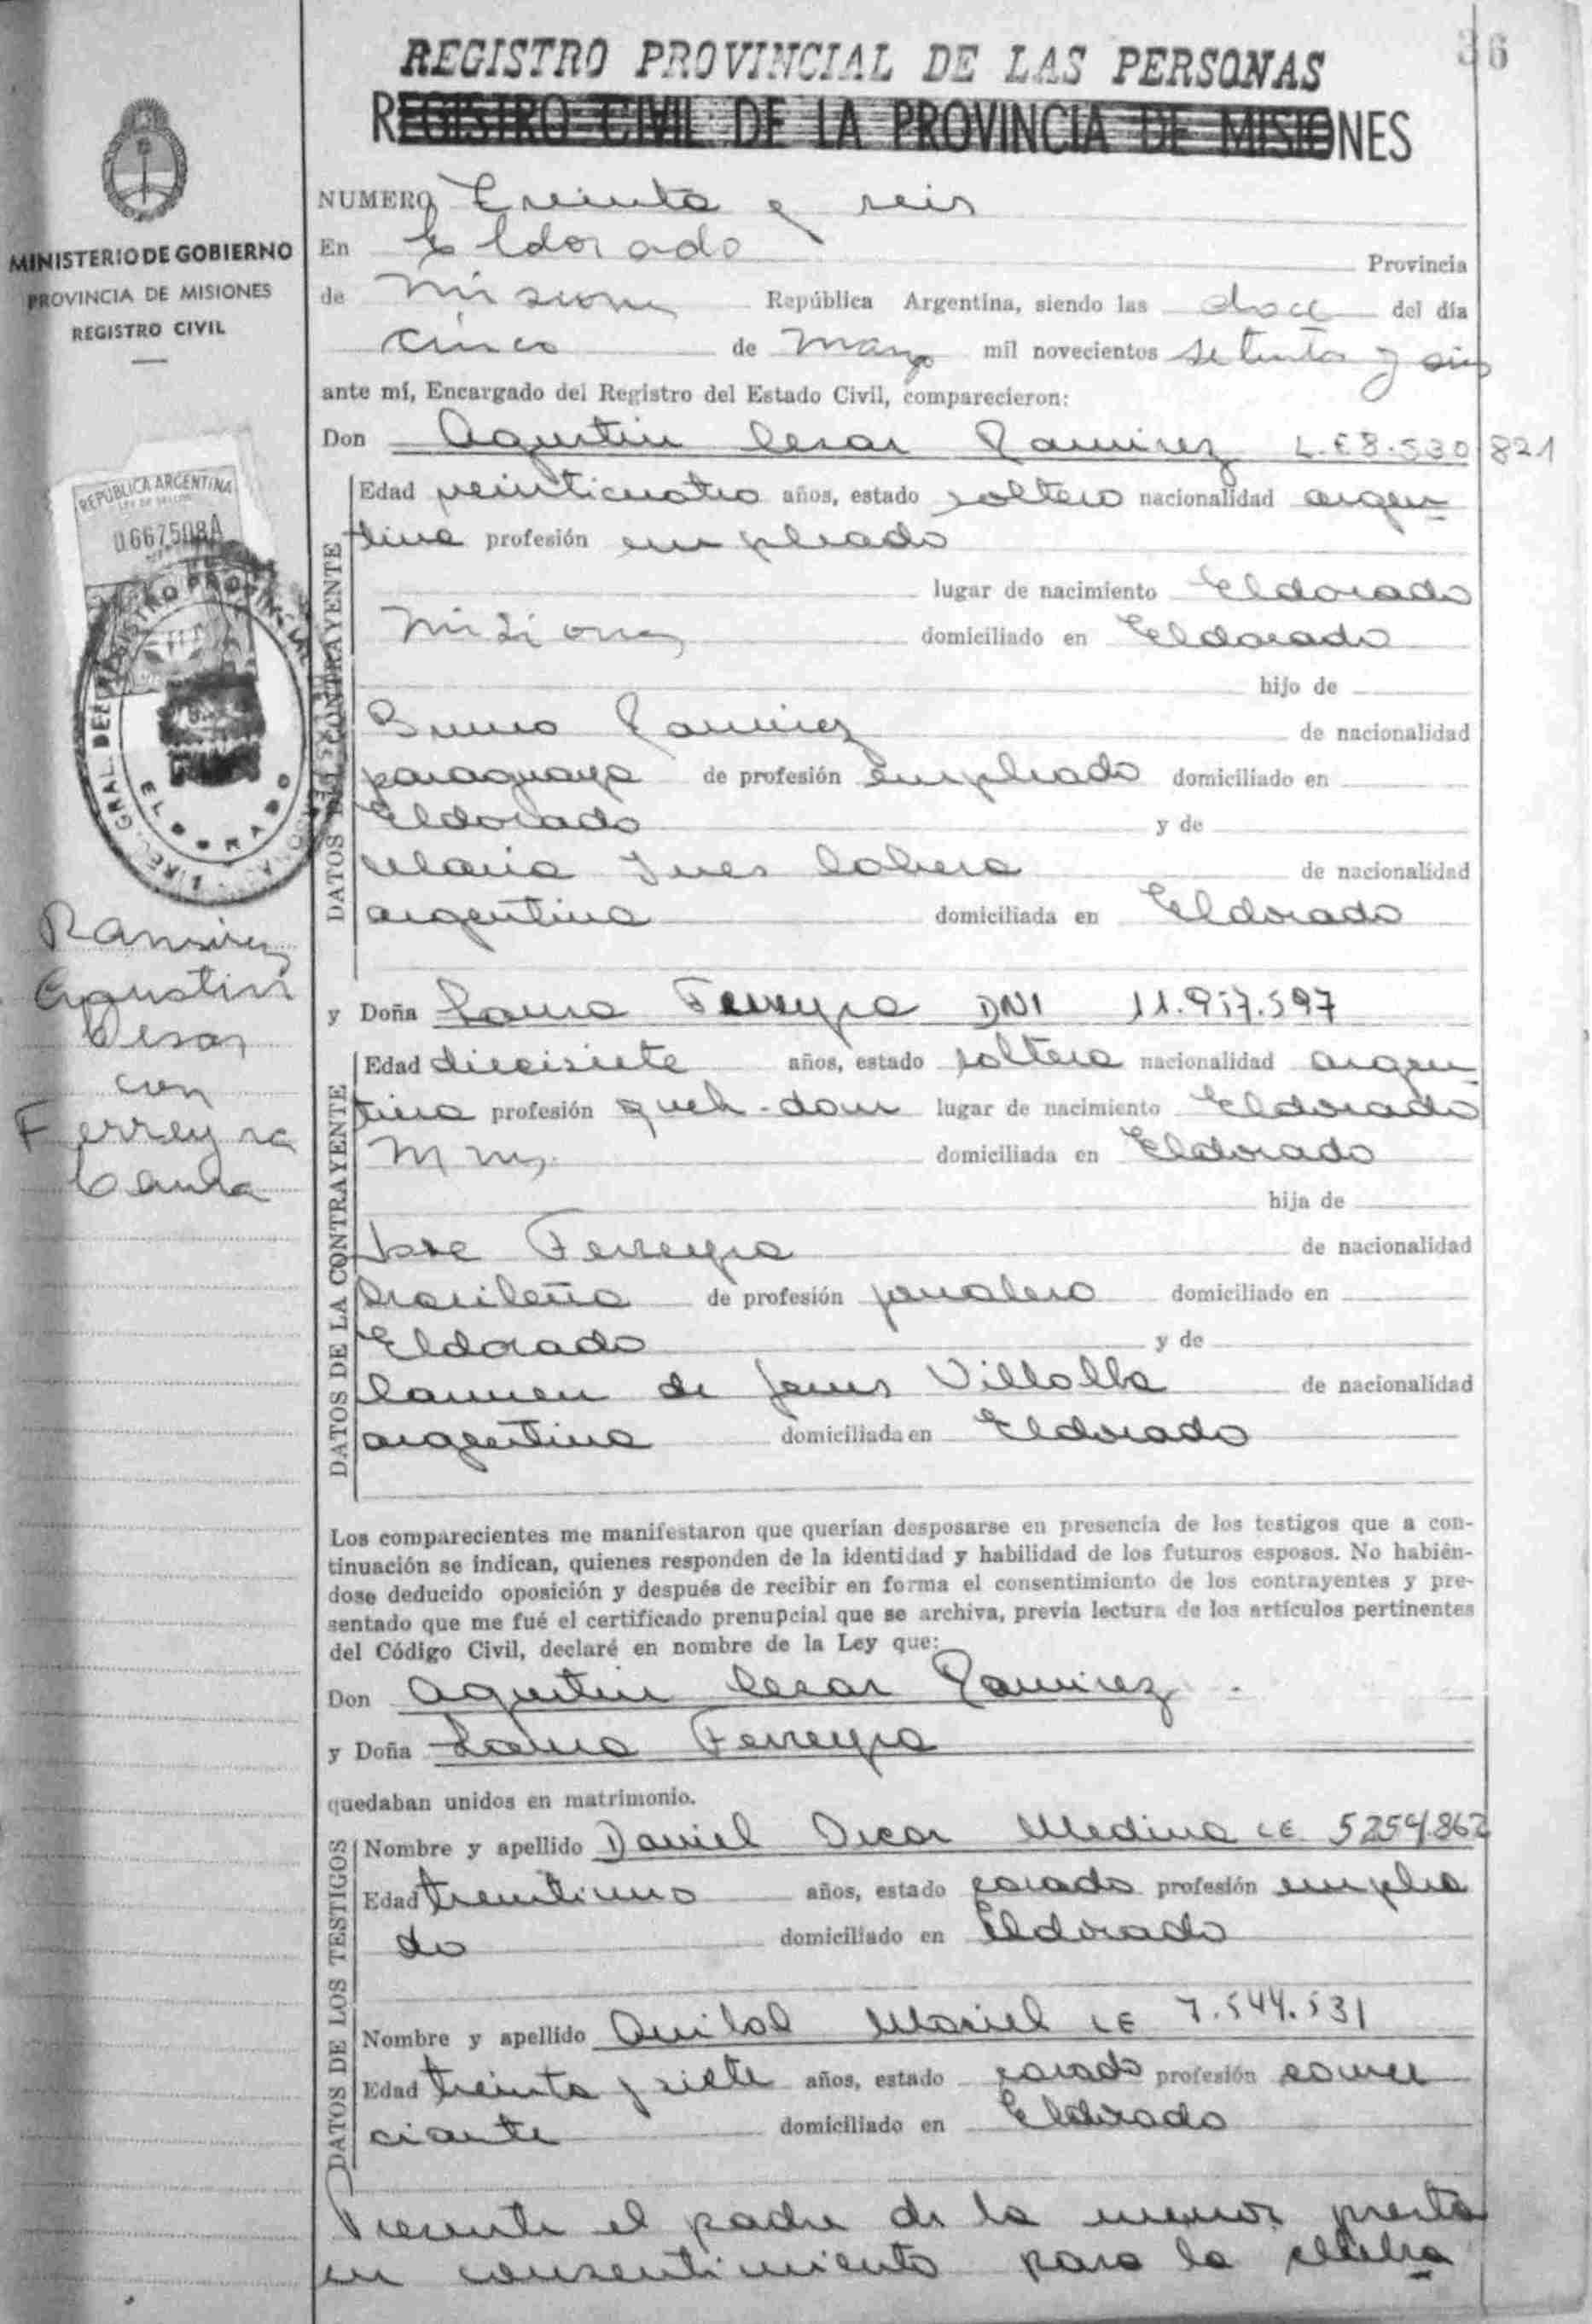 36
REGISTRO PROVINCIAL DE LAS PERSONAS
REGISTRO CIVIL DE LA PROVINCIA DE MISIONES
MINISTERIO DE GOBIERNO
PROVINCIA DE MISIONES
REGISTRO CIVIL
REPÚBLICA ARGENTINA
0667508A
ELDORADO
Ramirez
Agustin
Cesar
con
Ferreyra
Laura
NUMERO Treinta y seis
En Eldorado Provincia
de Misiones República Argentina, siendo las doce del día
cinco de Marzo mil novecientos setenta y seis
ante mí, Encargado del Registro del Estado Civil, comparecieron:
Don Agustin Cesar Ramirez L.E 8.530.821
DATOS DEL CONTRAYENTE
Edad veinticuatro años, estado soltero nacionalidad argen
tina profesión empleado
lugar de nacimiento Eldorado
Misiones domiciliado en Eldorado
hijo de
Bruno Ramirez de nacionalidad
paraguaya de profesión empleado domiciliado en
Eldorado y de
Maria Ines de nacionalidad
argentina domiciliada en Eldorado
y Doña Laura Ferreyra DNI 11.957.597
DATOS DE LA CONTRAYENTE
Edad diecisiete años, estado soltera nacionalidad argen
tina profesión queh-dom lugar de nacimiento Eldorado
Mnes. domiciliada en Eldorado
hija de
Jose Ferreyra de nacionalidad
brasileña de profesión jornalero domiciliado en
Eldorado y de
Carmen de Jesus Villalba de nacionalidad
argentina domiciliada en Eldorado
Los comparecientes me manifestaron que querían desposarse en presencia de los testigos que a con-
tinuación se indican, quienes responden de la identidad y habilidad de los futuros esposos. No habién-
dose deducido oposición y después de recibir en forma el consentimiento de los contrayentes y pre-
sentado que me fué el certificado prenupcial que se archiva, previa lectura de los artículos pertinentes
del Código Civil, declaré en nombre de la Ley que:
Don Agustin Cesar Ramirez
y Doña Laura Ferreyra
quedaban unidos en matrimonio.
DATOS DE LOS TESTIGOS
Nombre y apellido Daniel Oscar Medina LE 5254.862
Edad treintiuno años, estado casado profesión emplea
do domiciliado en Eldorado
Nombre y apellido Anibal Mariel LE 7.544.531
Edad treinta y siete años, estado casado profesión comer
ciante domiciliado en Eldorado
Presente el padre de la menor presta
su consentimiento para la celebra